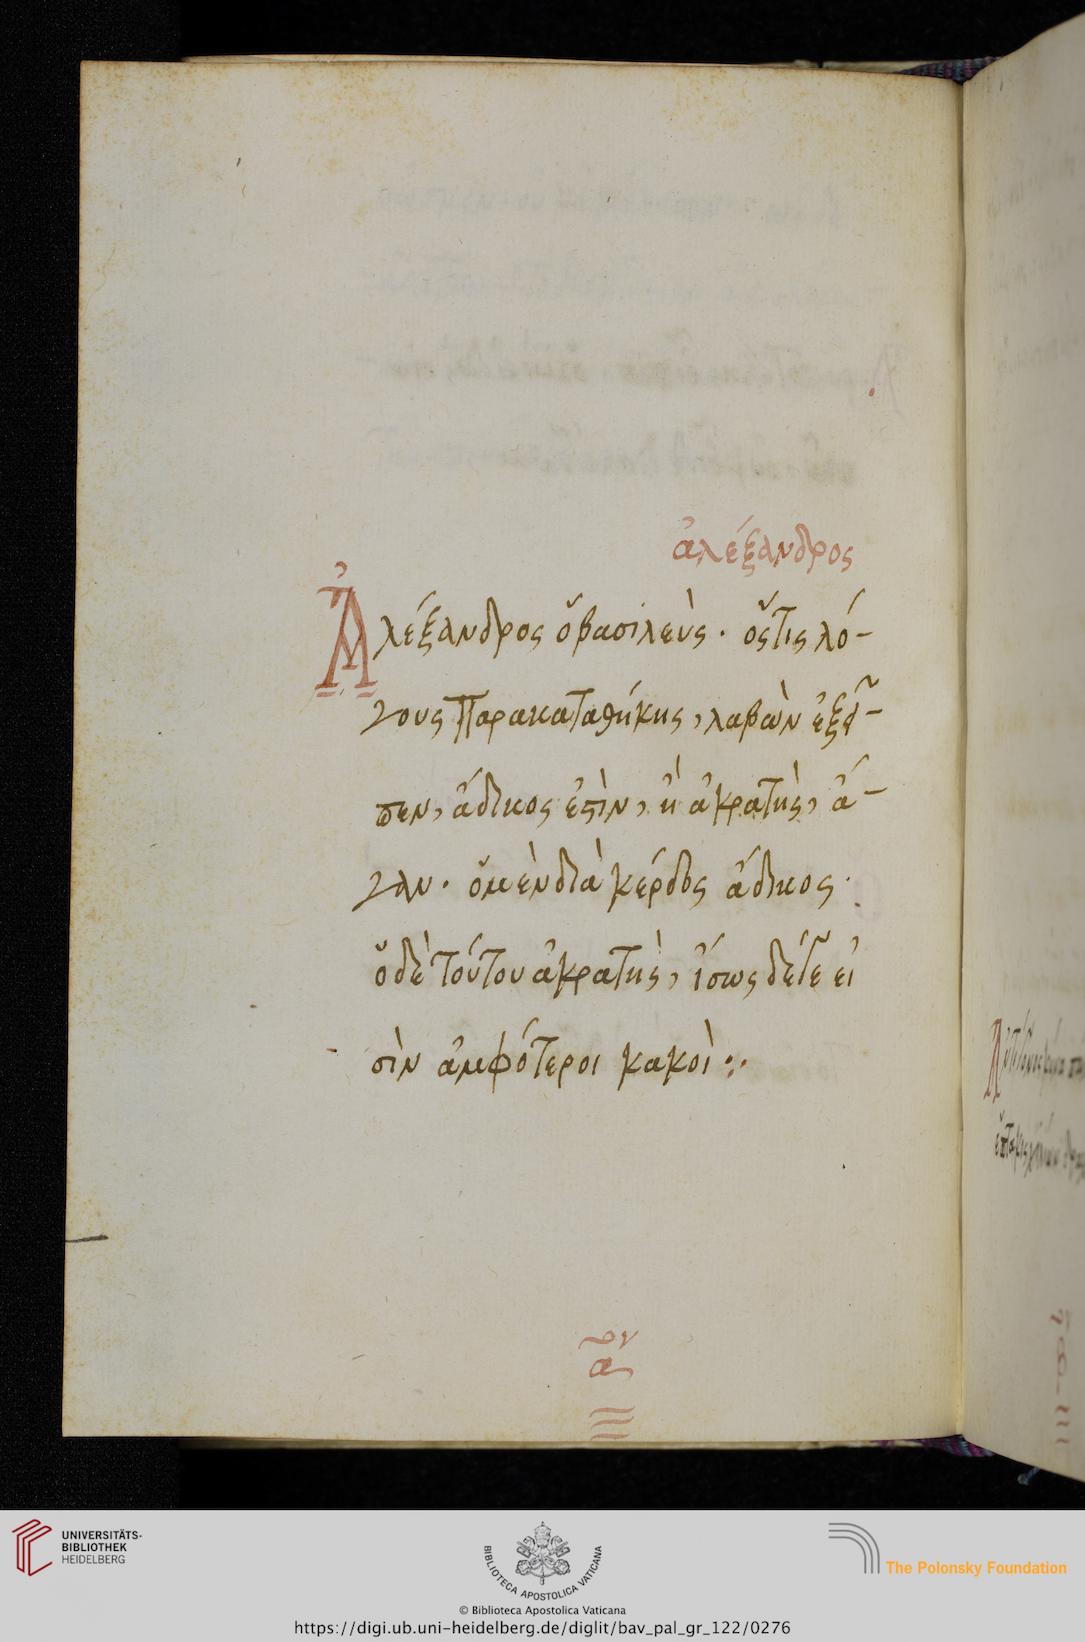 ἀλέξανδρος
Ἀλέξανδρος ὁ βασιλεὺς · ὅςτις λό-
γους παρακαταθήκης, λαβὼν ἐξεῖ-
πεν, ἄδικος ἐστὶν, ἢ ἀκρατὴς, ἄ-
γαν · ὁ μὲν διὰ κέρδος ἄδικος ·
ὁ δὲ τούτου ἀκρατὴς, ἴσως δέ γε εἰ
σὶν ἀμφότεροι κακοὶ :·
UNIVERSITÄTS-
BIBLIOTHEK
HEIDELBERG
BIBLIOTECA APOSTOLICA VATICANA
© Biblioteca Apostolica Vaticana
The Polonsky Foundation
https://digi.ub.uni-heidelberg.de/diglit/bav_pal_gr_122/0276